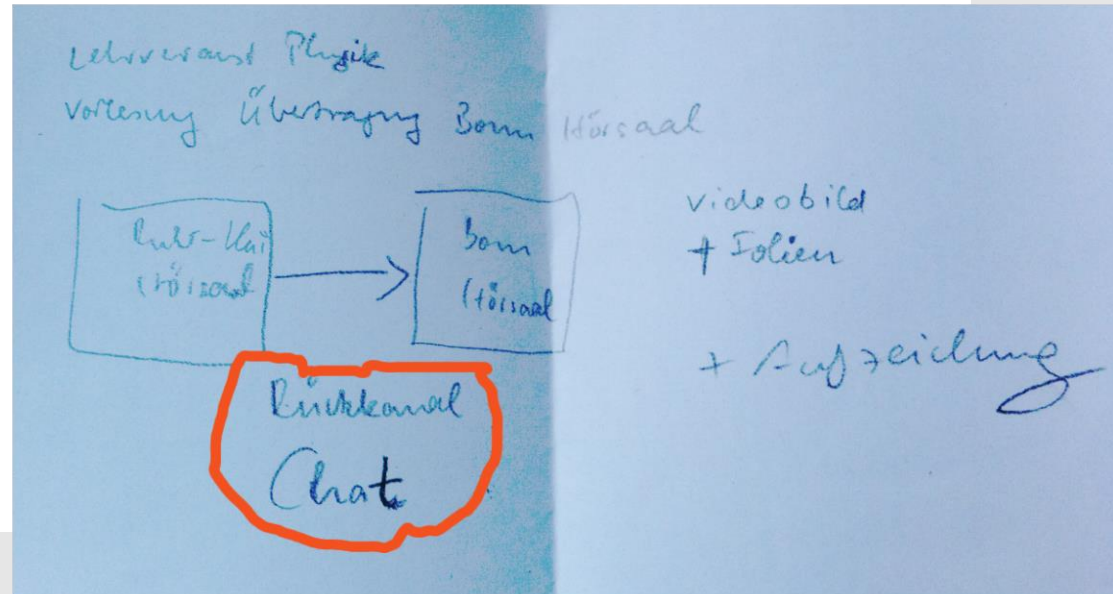 Lehrveranst Physik
Vorlesung Übertragung Bonn Hörsaal
Ruhr-Uni
Hörsaal
Bonn
Hörsaal
Videobild
+ Folien
+ Aufzeichnung
Rückkanal
Chat